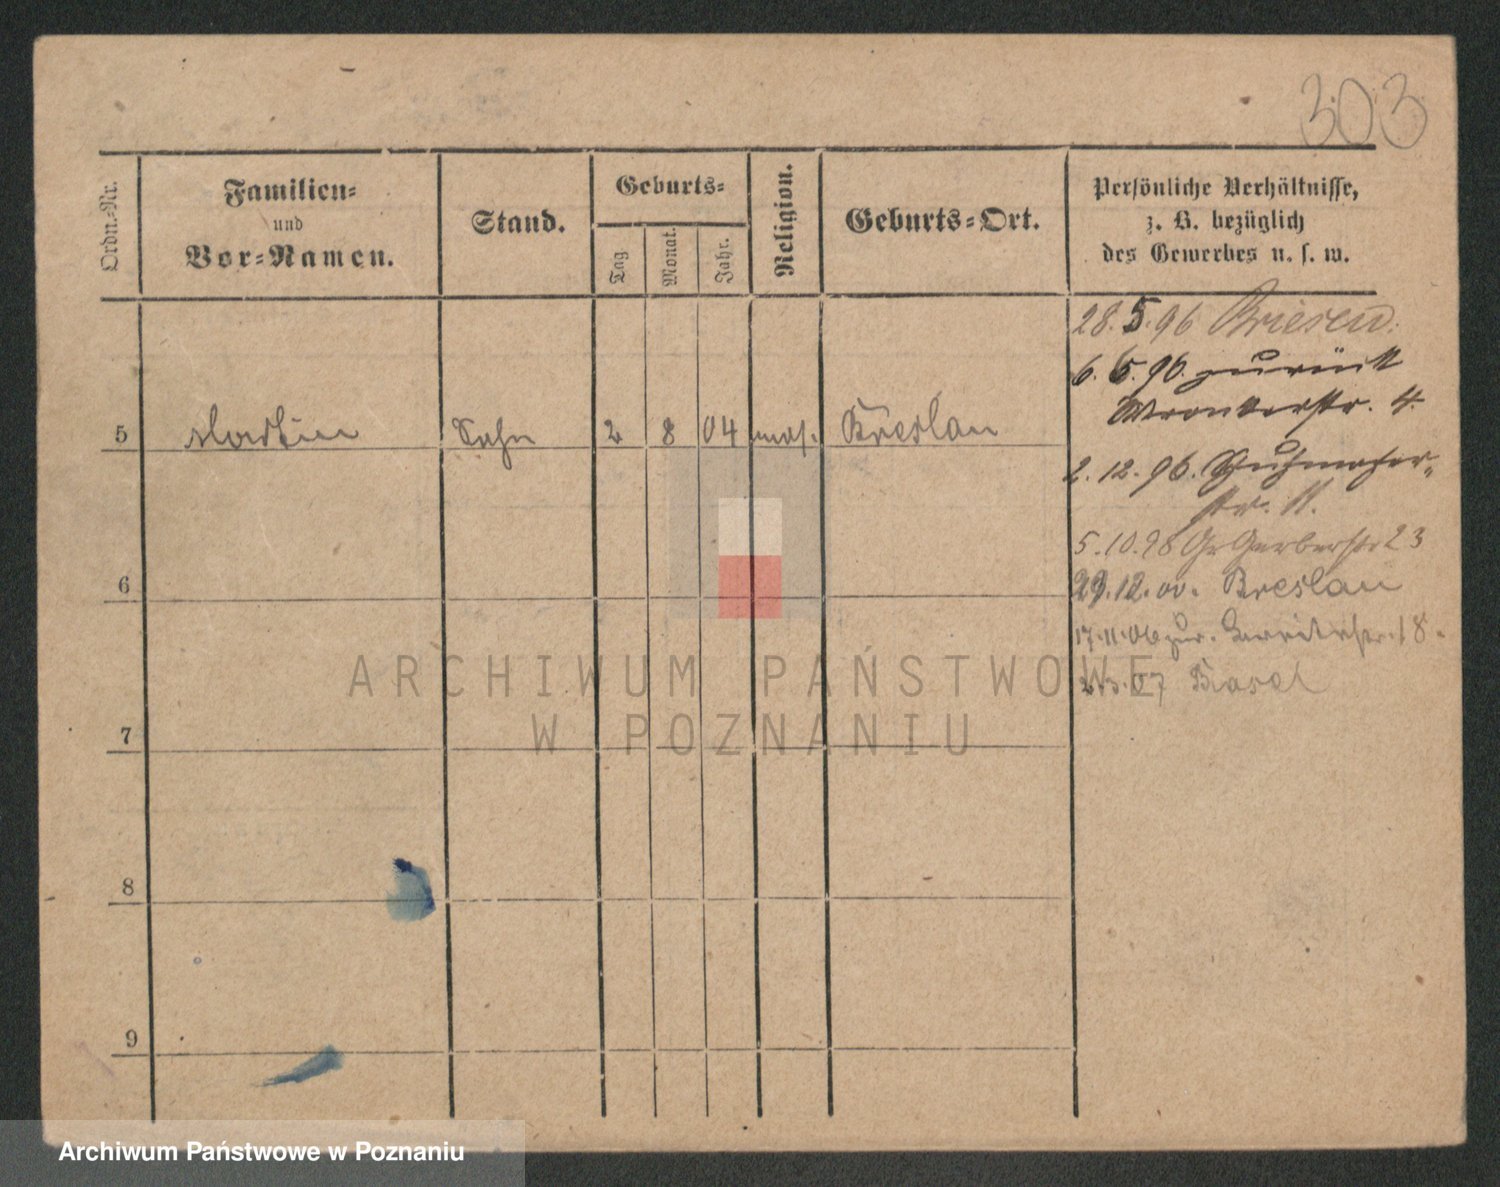 303
Ordn.-Nr.
Familien-
und
Vor-Namen.
Stand.
Geburts-
Tag
Monat.
Jahr.
Religion.
Geburts-Ort.
Persönliche Verhältnisse,
z. B. bezüglich
des Gewerbes u. s. w.
28.5.96 Briesen.
6.6.96. zurück
Wronkerstr. 4.
5 Martin Sohn 2 8 04 mos. Breslau
2.12.96. Schuhmacher-
str. 11.
5.10.98 Gr Gerberstr 23
6
29.12.00. Breslau
17.11.06 zur. 18.
07 Basel
7
8
9
ARCHIWUM PAŃSTWOWE
W POZNANIU
Archiwum Państwowe w Poznaniu